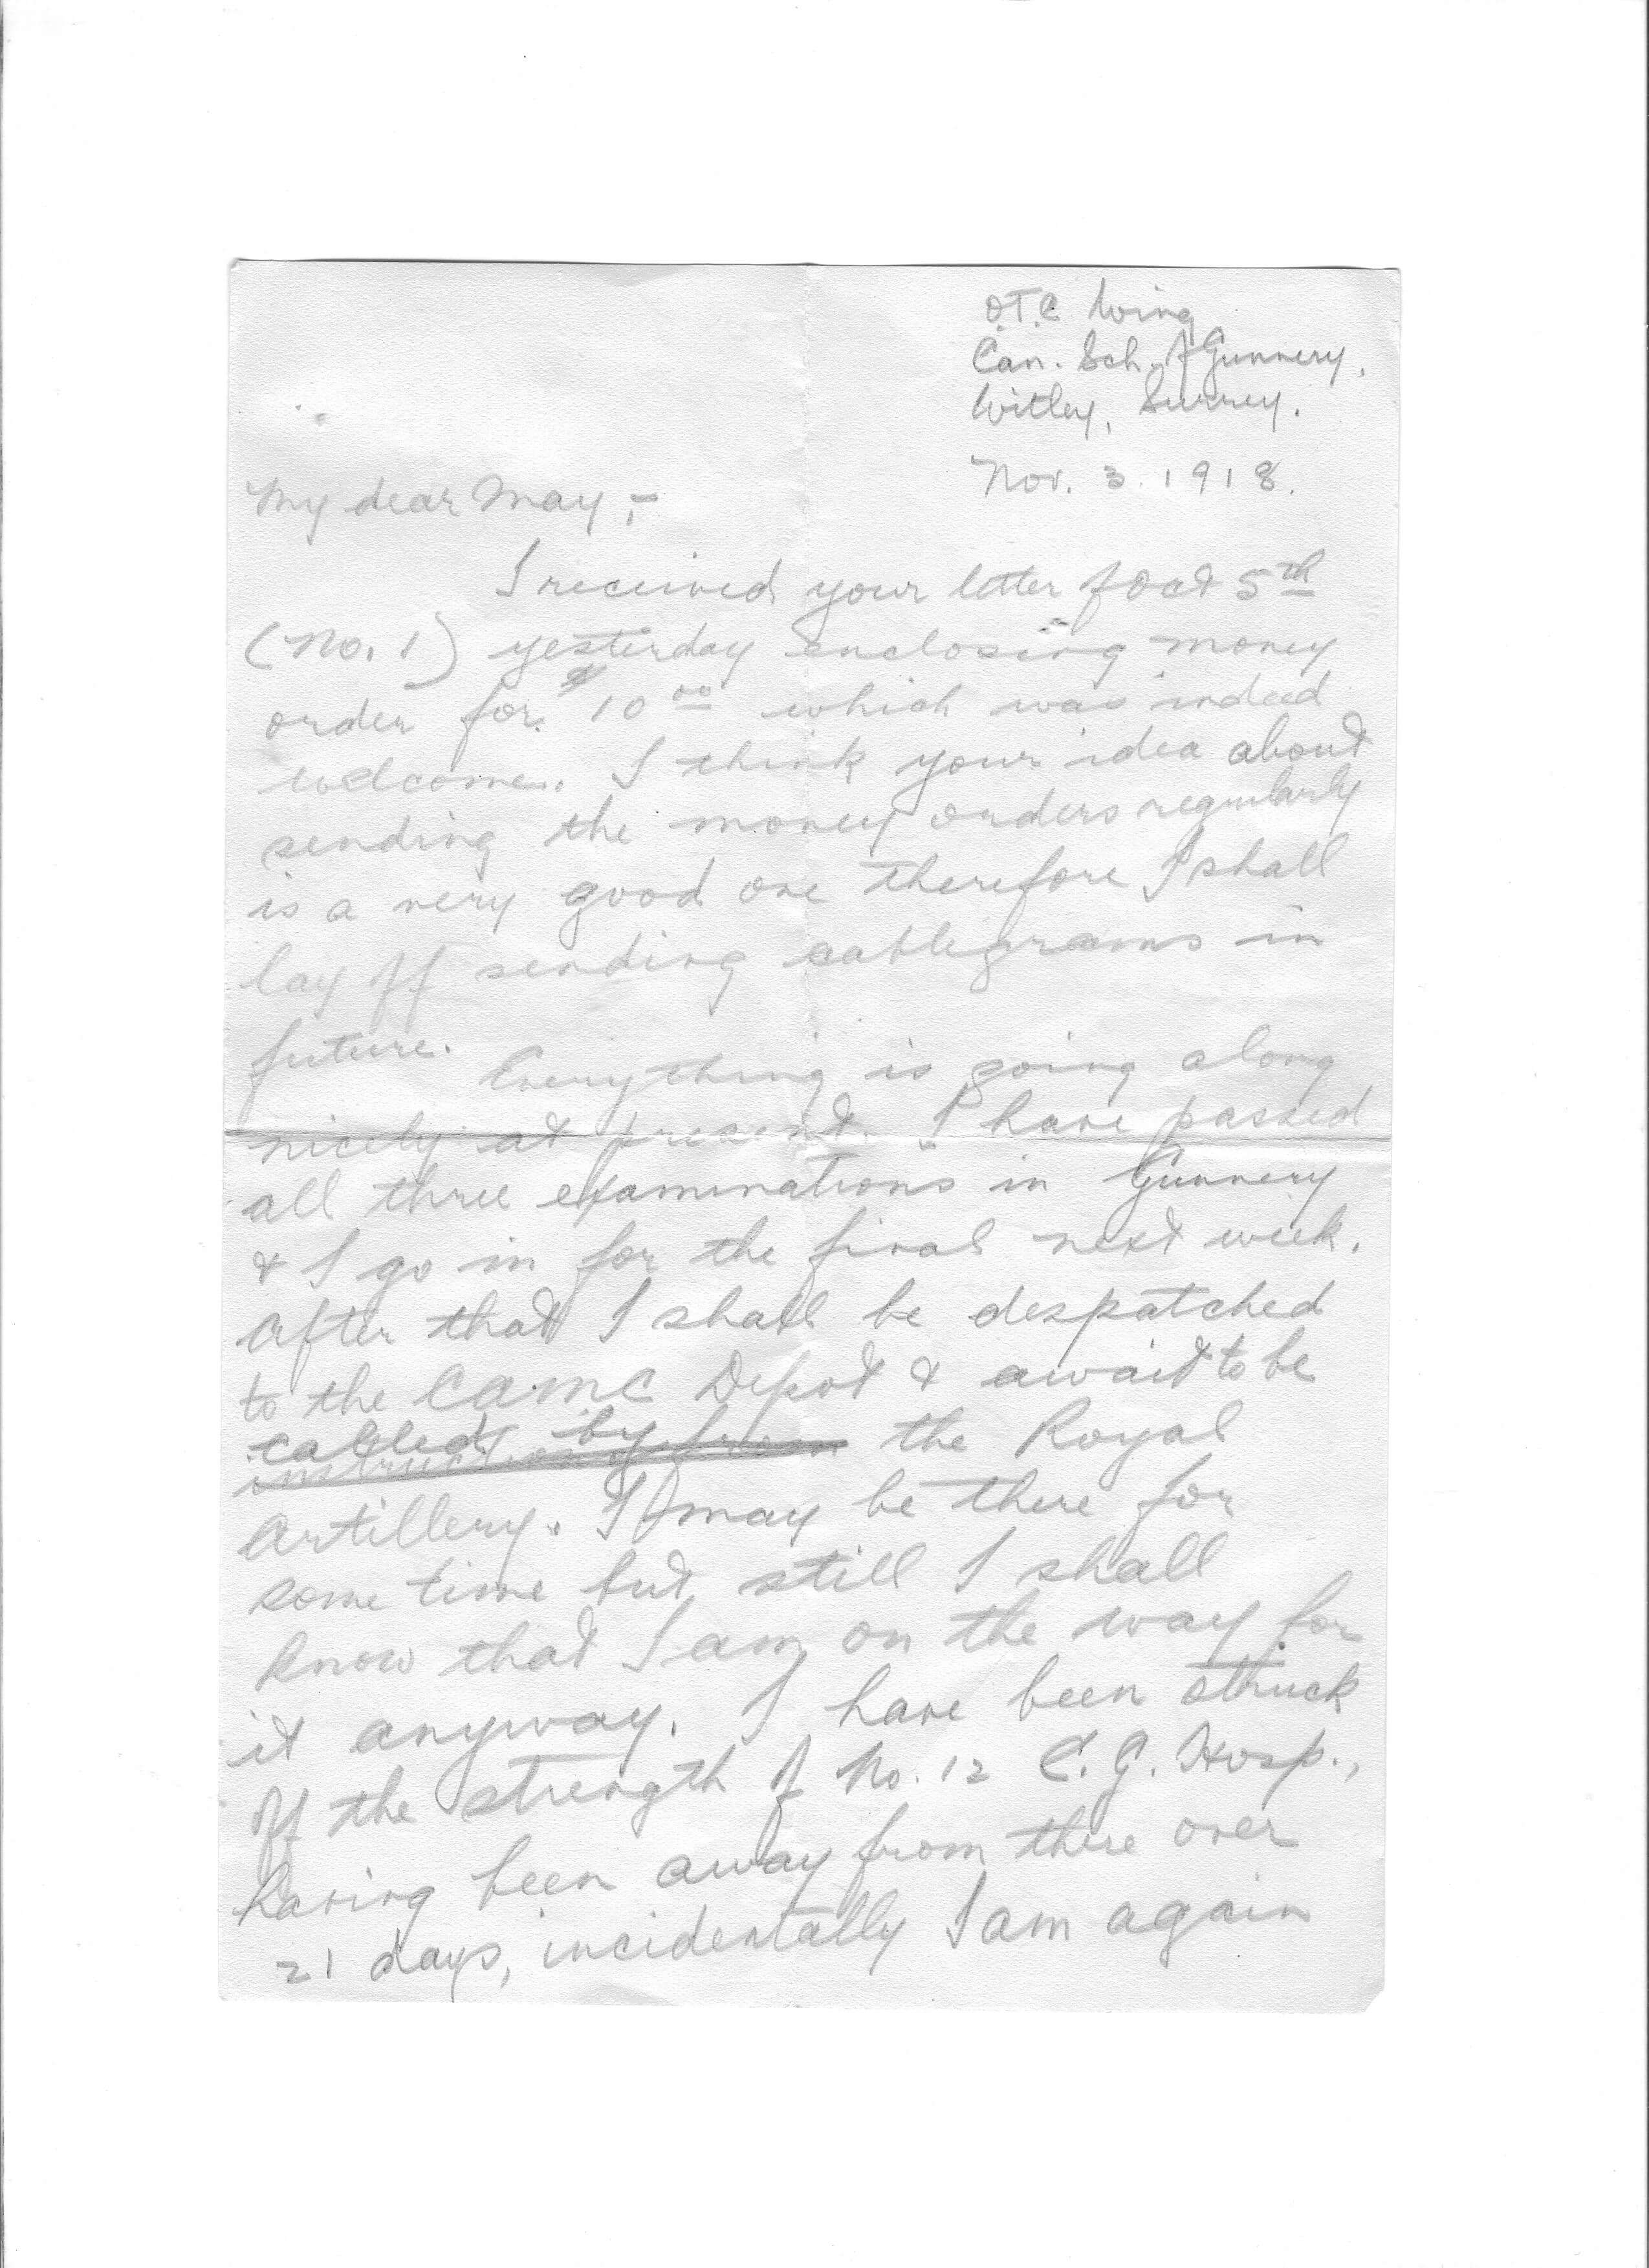 O.T.C Wing
Can. Sch. of Gunnery,
Witley, Surrey.
Nov. 3. 1918.
My dear May,-
I received your letter of Oct 5th
(No. 1) yesterday enclosing money
order for $10 00 which was indeed
welcome. I think your idea about
sending the money orders regularly
is a very good one therefore I shall
lay off sending cablegrams in
future.
Everything is going along
nicely at present. I have passed
all three examinations in Gunnery
& I go in for the final next week.
After that I shall be despatched
to the CAMC Depot & await to be
called by the Royal
Artillery. I may be there for
some time but still I shall
know that I am on the way for
it anyway. I have been struck
off the strength of No. 12 C. G. Hosp.,
having been away from there over
21 days, incidentally I am again